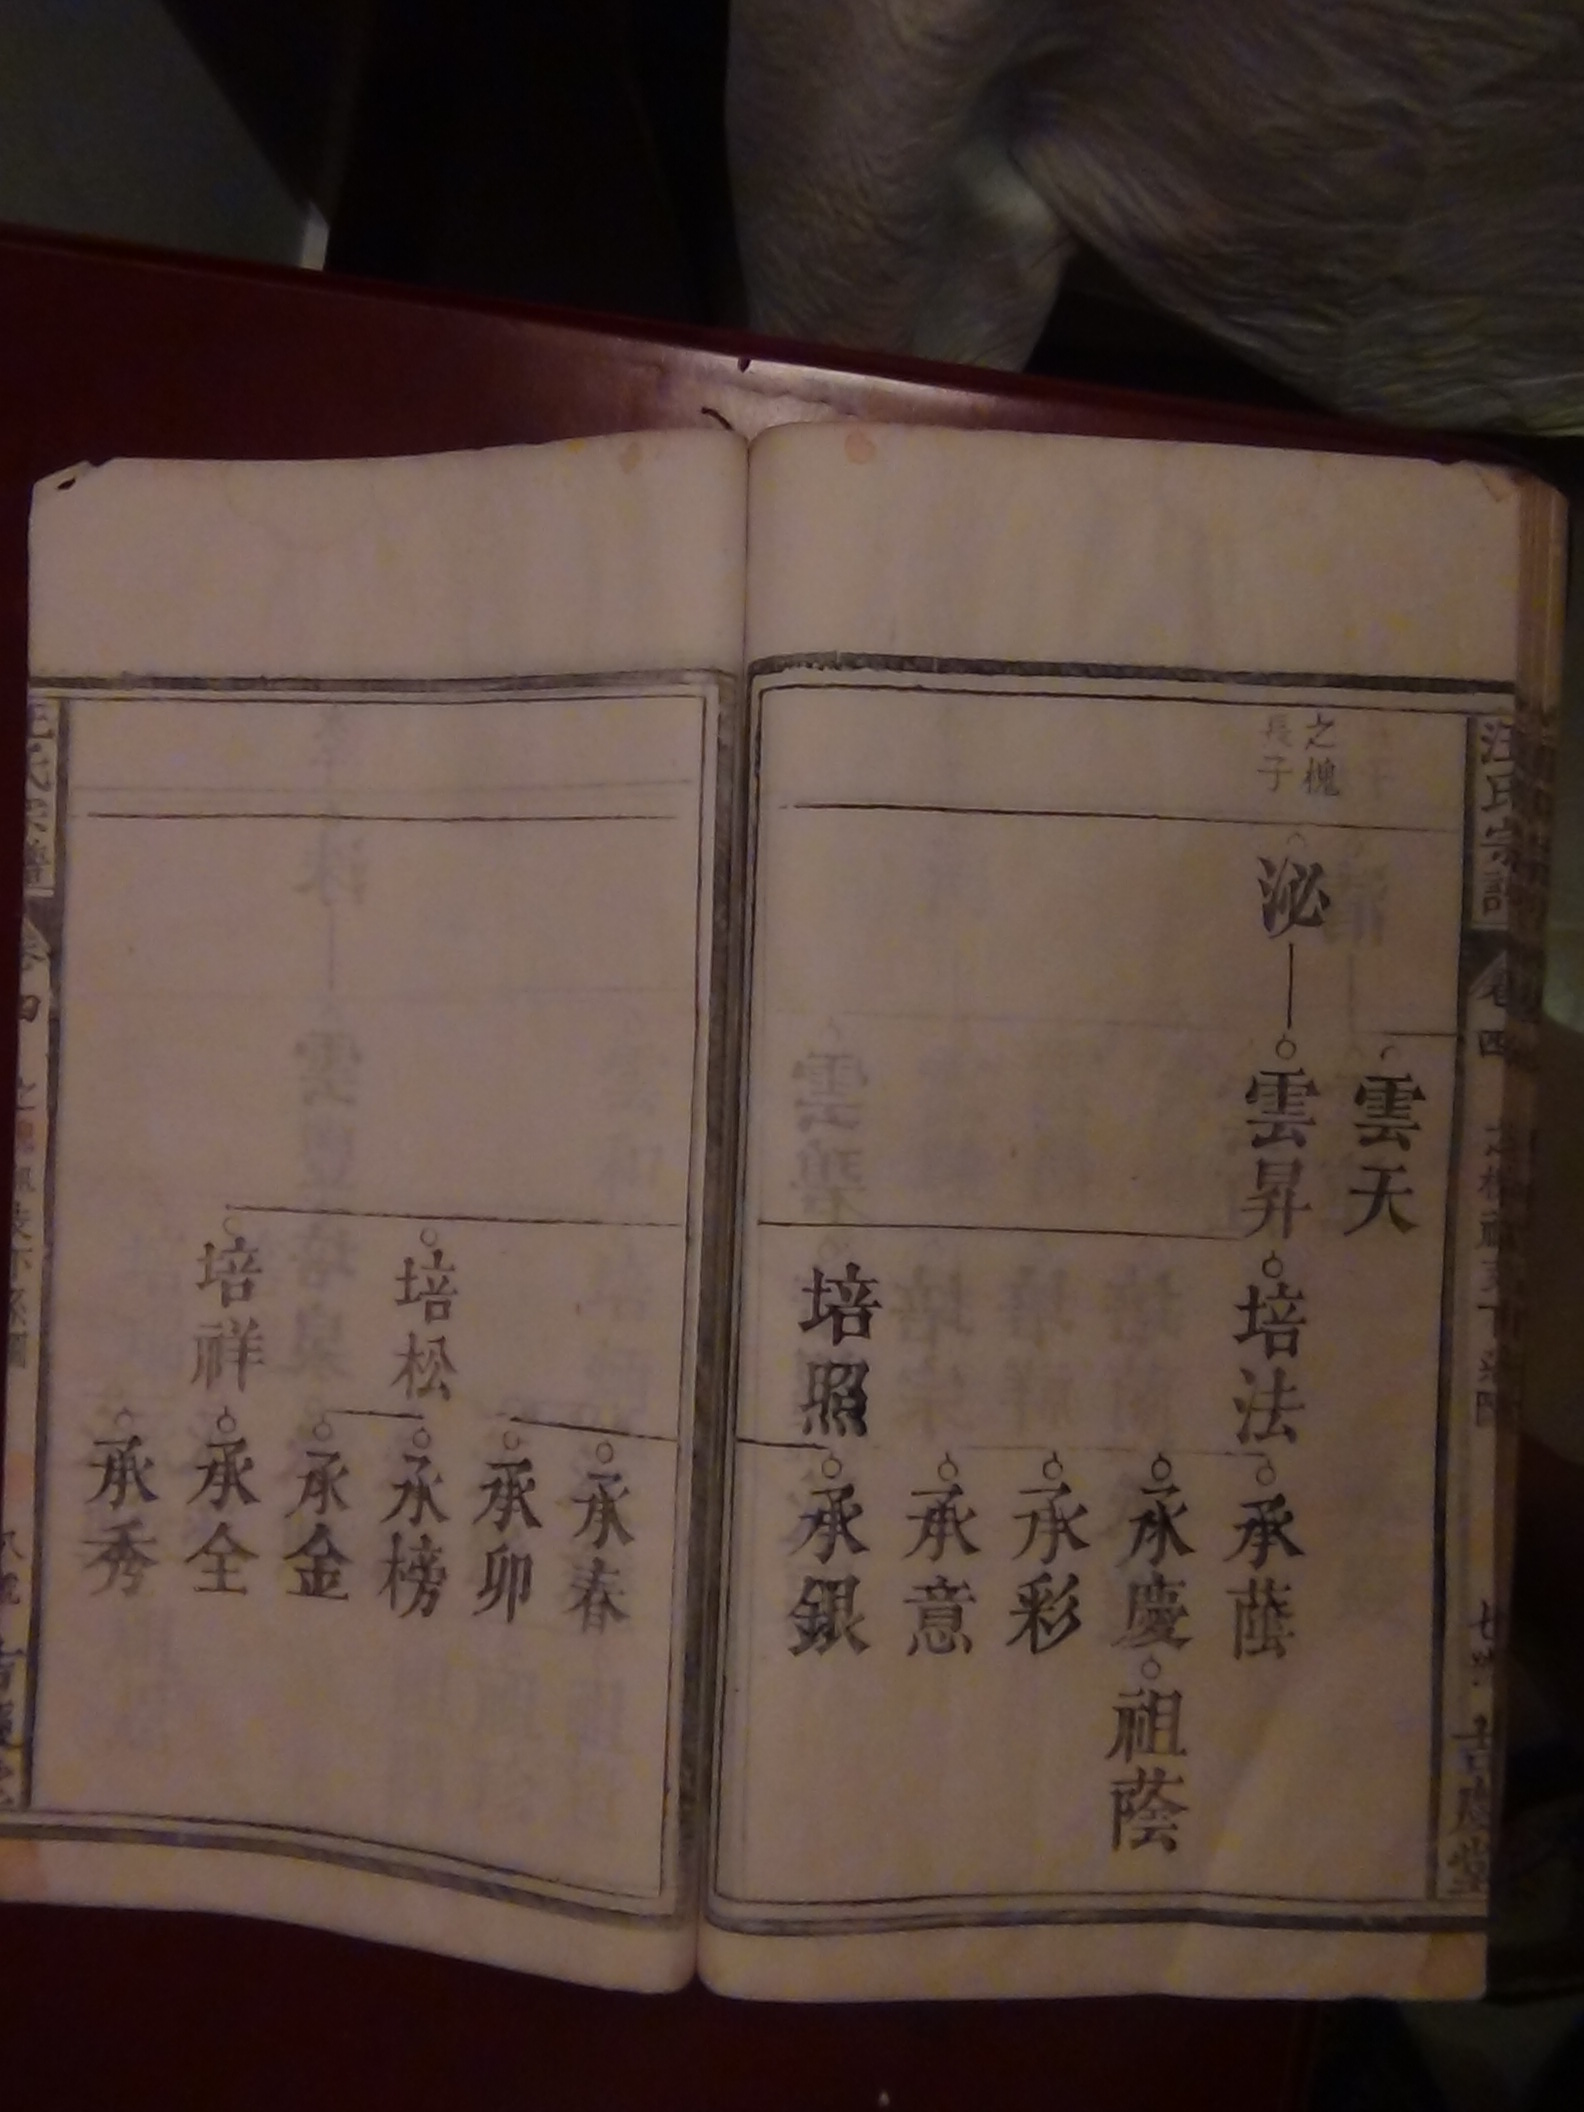 汪氏宗譜
卷四
之槐
長子
雲天
泌
雲昇
培法
承蔭
承慶
祖蔭
承彩
承意
培照
承銀
承春
承卯
培松
承榜
承金
培祥
承全
承秀
汪氏宗譜
卷四